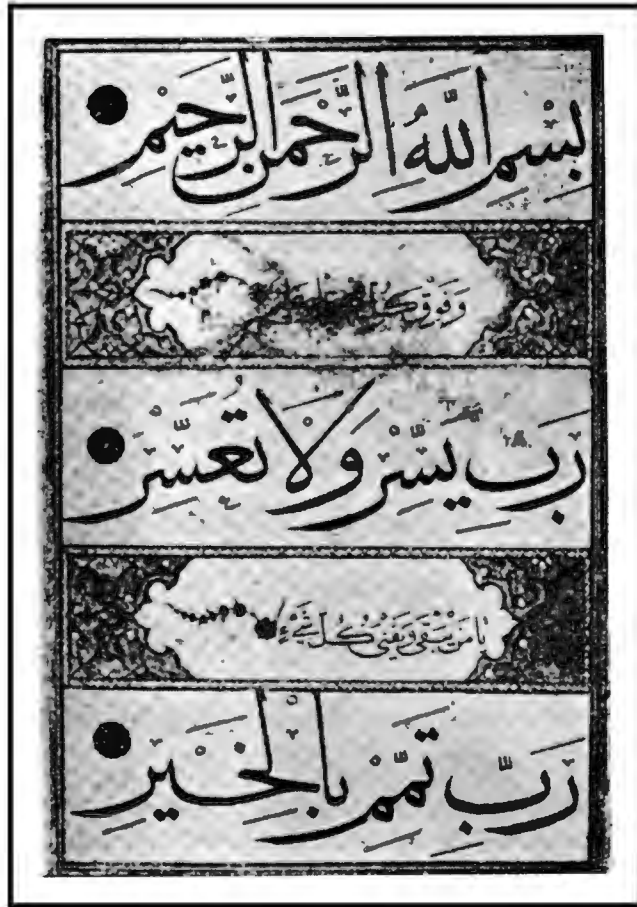 بِسْمِ اللَّهِ الرَّحْمَنِ الرَّحِيمِ
وَفَوْقَ كُلِّ
رَبِّ يَسِّرْ وَلَا تُعَسِّرْ
يَا مَنْ يَبْقَى وَيَفْنَى كُلُّ شَيْءٍ
رَبِّ تَمِّمْ بِالْخَيْرِ